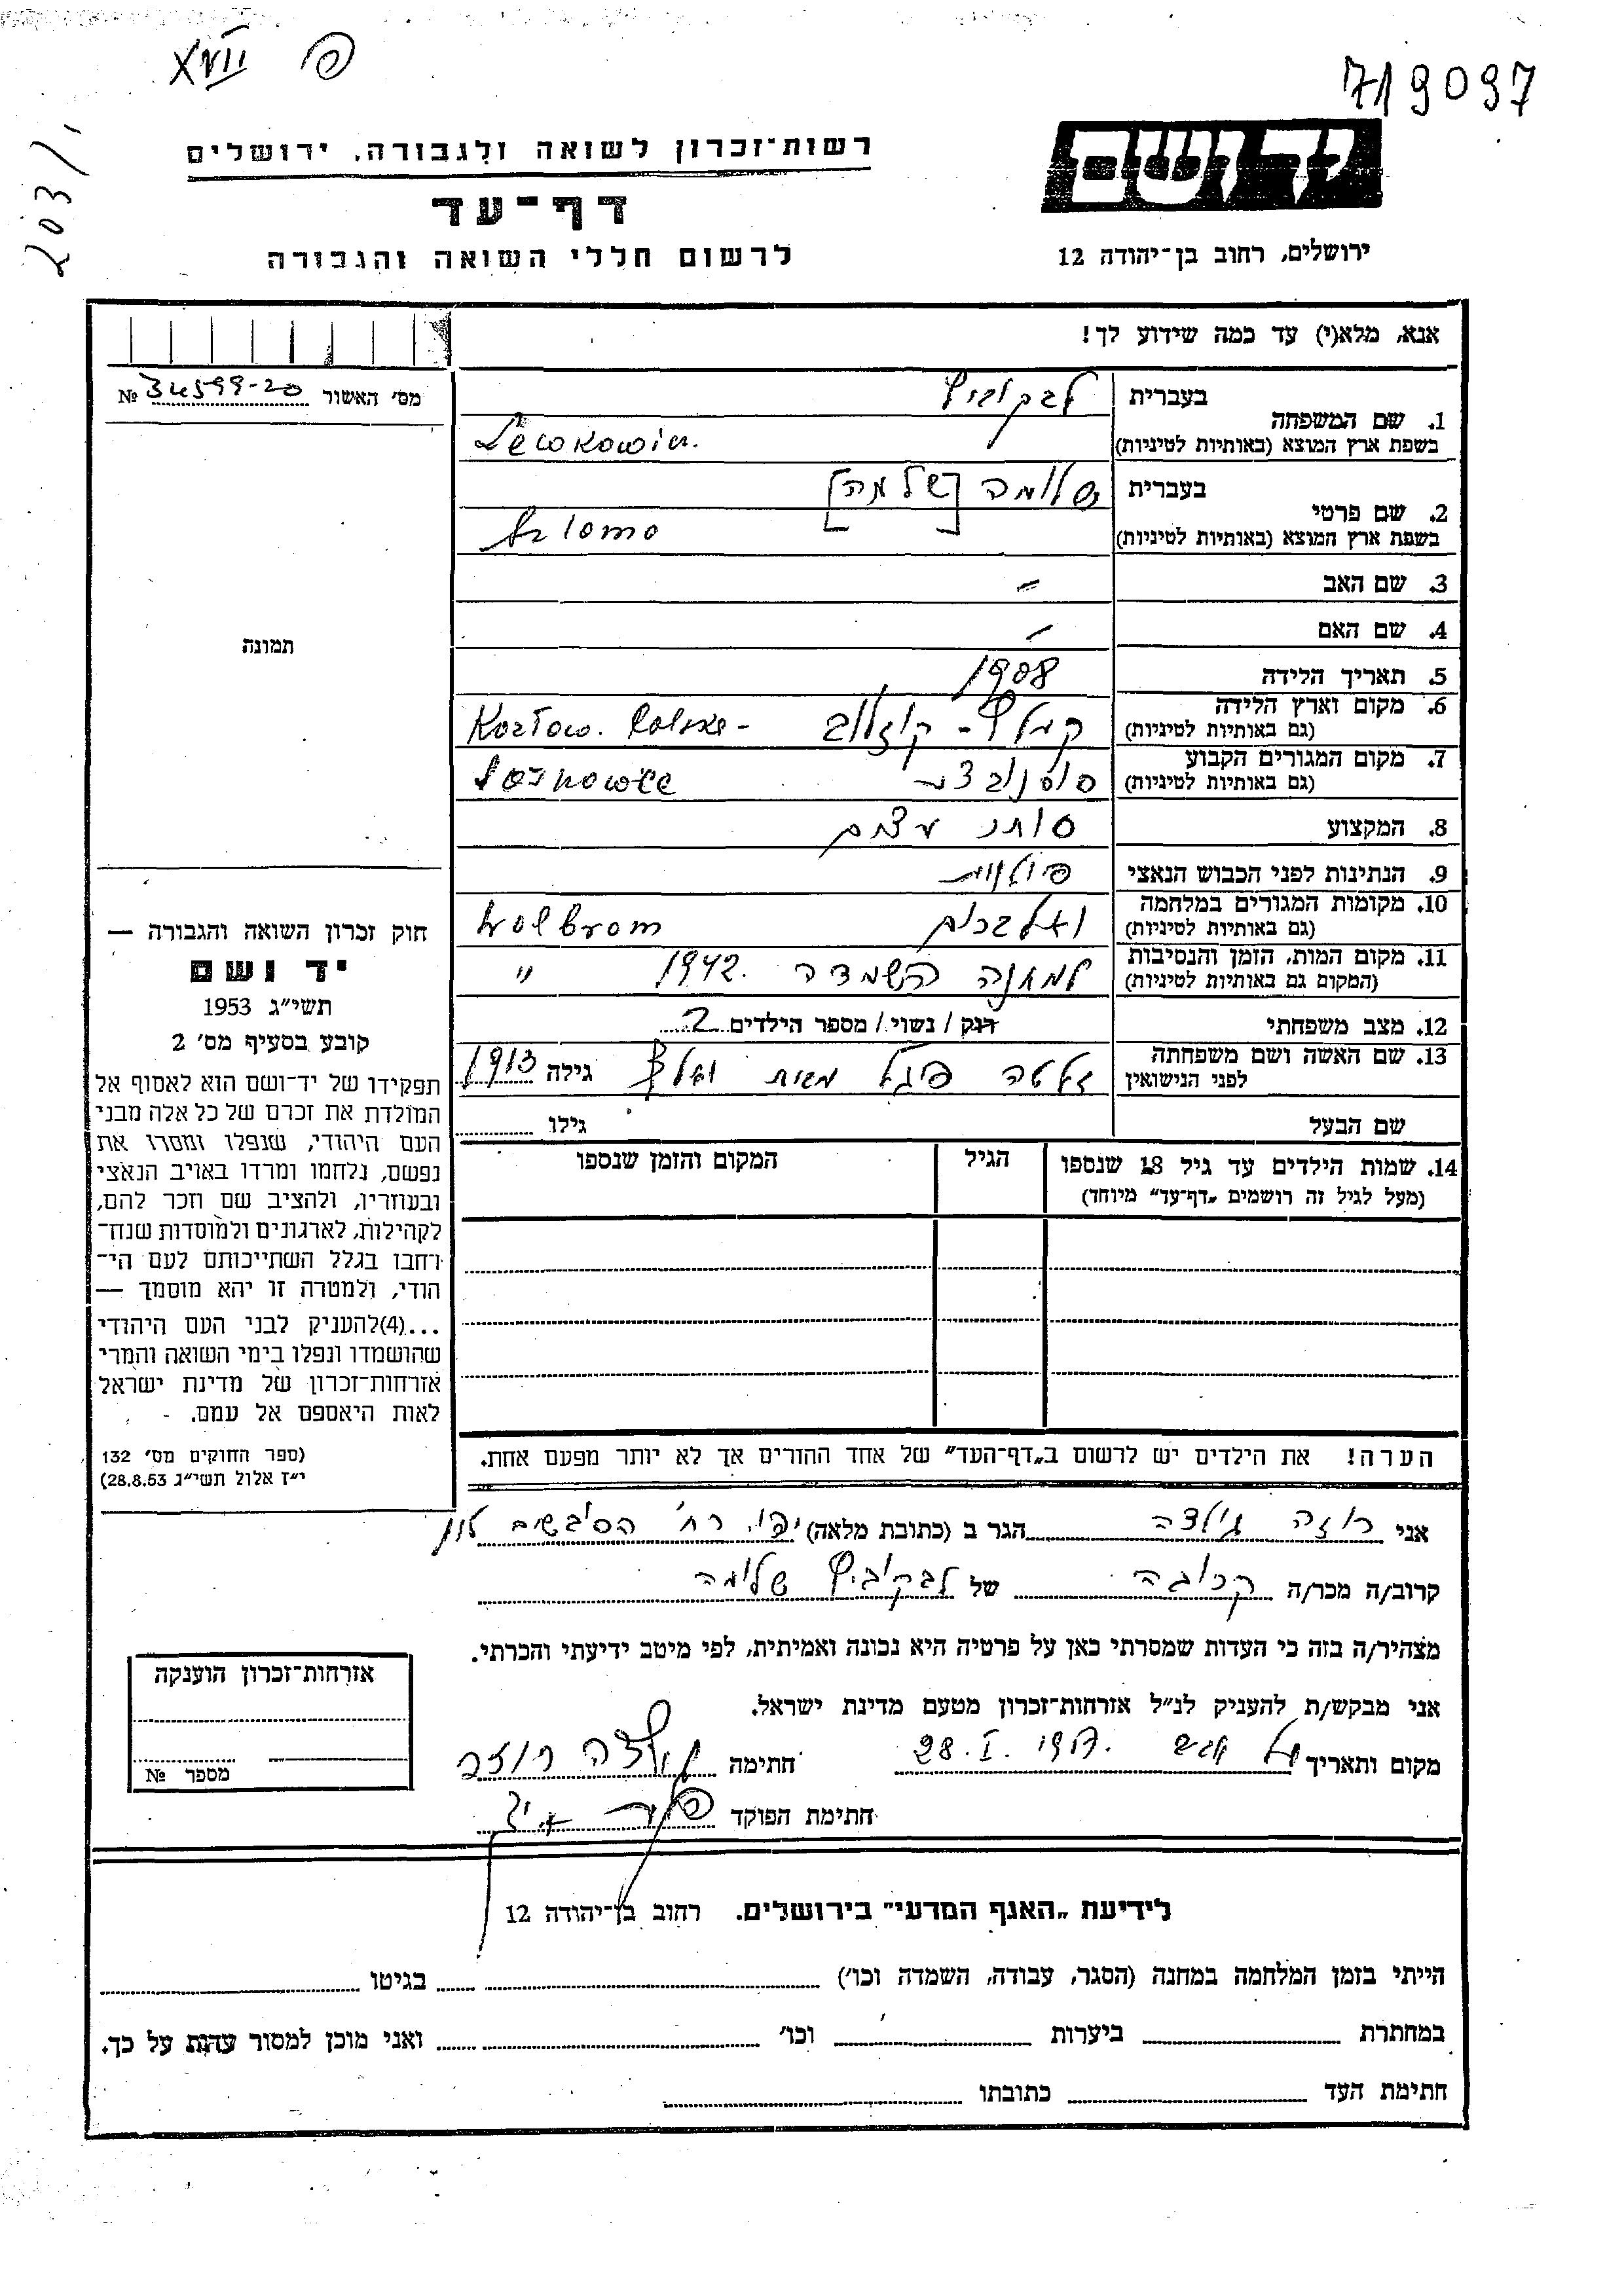 XVII
719097
203/1
רשות־זכרון לשואה ולגבורה, ירושלים
דף־עד
לרשום חללי השואה והגבורה
יד ושם
ירושלים, רחוב בן־יהודה 12
אנא, מלא(י) עד כמה שידוע לך!
מס׳ האשור 34599-20 №
1. שם המשפחה
בעברית לבקוביץ
בשפת ארץ המוצא (באותיות לטיניות) Lewkowicz
2. שם פרטי
בעברית שלומה [שלמה]
בשפת ארץ המוצא (באותיות לטיניות) Szlomo
3. שם האב –
4. שם האם –
5. תאריך הלידה 1908
6. מקום וארץ הלידה
(גם באותיות לטיניות) קוזלוב Kozłow. Polska -
7. מקום המגורים הקבוע
(גם באותיות לטיניות) סוסנובצה Sosnowce
8. המקצוע סוחר עצים
9. הנתינות לפני הכבוש הנאצי פולנית
10. מקומות המגורים במלחמה
(גם באותיות לטיניות) וולברום Wolbrom
11. מקום המות, הזמן והנסיבות
(המקום גם באותיות לטיניות) למחנה השמדה 1942. "
12. מצב משפחתי רוק / נשוי / מספר הילדים 2
13. שם האשה ושם משפחתה
לפני הנישואין זלטה פיגל מבית גילה 1913
שם הבעל גילו
14. שמות הילדים עד גיל 18 שנספו
(מעל לגיל זה רושמים „דף־עד" מיוחד)
הגיל
המקום והזמן שנספו
הערה! את הילדים יש לרשום ב„דף־העד" של אחד ההורים אך לא יותר מפעם אחת.
תמונה
חוק זכרון השואה והגבורה —
יד ושם
תשי״ג 1953
קובע בסעיף מס׳ 2
תפקידו של יד־ושם הוא לאסוף אל
המולדת את זכרם של כל אלה מבני
העם היהודי, שנפלו ומסרו את
נפשם, נלחמו ומרדו באויב הנאצי
ובעוזריו, ולהציב שם וזכר להם,
לקהילות, לארגונים ולמוסדות שנח־
רבו בגלל השתייכותם לעם הי־
הודי, ולמטרה זו יהא מוסמך —
...(4)להעניק לבני העם היהודי
שהושמדו ונפלו בימי השואה והמרי
אזרחות־זכרון של מדינת ישראל
לאות היאספם אל עמם.
(ספר החוקים מס׳ 132
י״ז אלול תשי״ג 28.8.53)
אני רוזה גולדה הגר ב (כתובת מלאה) יפו, רח׳
קרוב/ה מכר/ה קרובה של לבקוביץ שלומה
מצהיר/ה בזה כי העדות שמסרתי כאן על פרטיה היא נכונה ואמיתית, לפי מיטב ידיעתי והכרתי.
אני מבקש/ת להעניק לנ״ל אזרחות־זכרון מטעם מדינת ישראל.
מקום ותאריך 28.I. חתימה גולדה רוזה
חתימת הפוקד
אזרחות־זכרון הוענקה
מספר №
לידיעת „האגף המדעי" בירושלים. רחוב בן־יהודה 12
הייתי בזמן המלחמה במחנה (הסגר, עבודה, השמדה וכו׳) בגיטו
במחתרת ביערות וכו׳ ואני מוכן למסור עדות על כך.
חתימת העד כתובתו